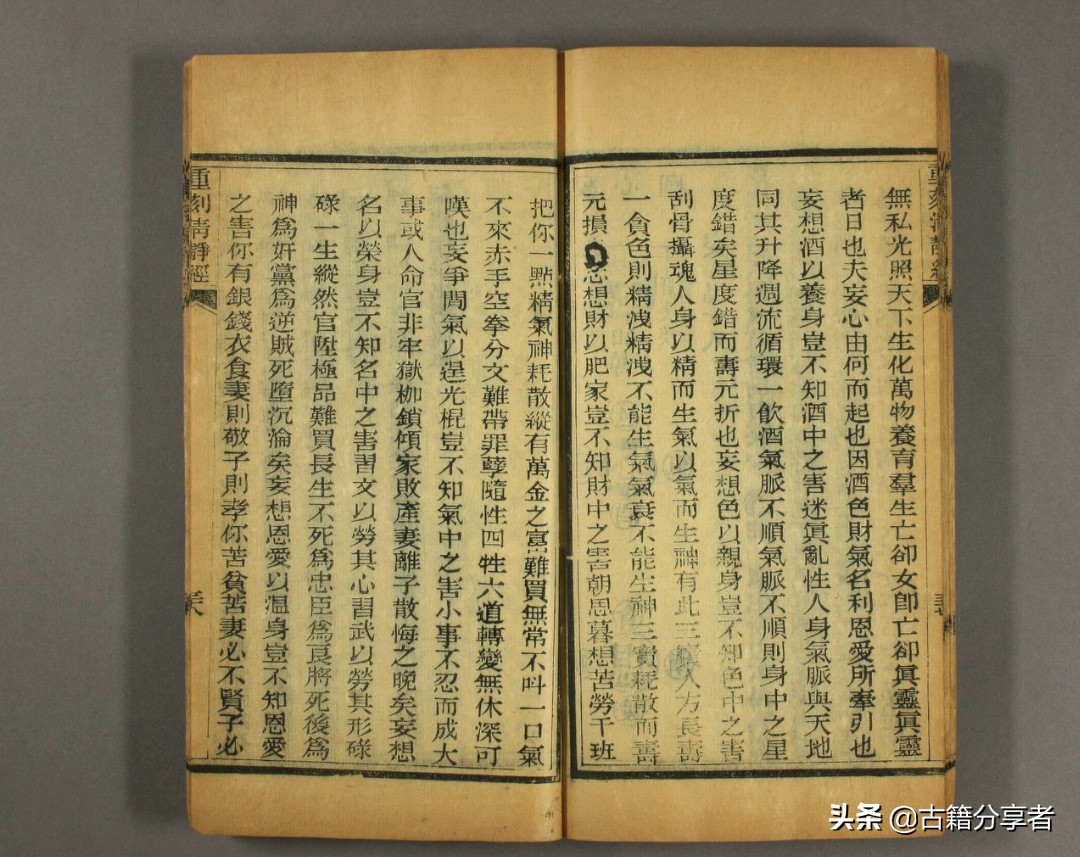 無私光照天下生化萬物養育羣生亡卻女卽亡卻眞靈眞靈
者日也夫妄心由何而起也因酒色財氣名利恩愛所牽引也
妄想酒以養身豈不知酒中之害迷眞亂性人身氣脈與天地
同其升降週流循環一飲酒氣脈不順氣脈不順則身中之星
度錯矣星度錯而壽元折也妄想色以親身豈不知色中之害
刮骨攝魂人身以精而生氣以氣而生神有此三寶人方長壽
一貪色則精洩精洩不能生氣氣衰不能生神三寶耗散而壽
元損 忘想財以肥家豈不知財中之害朝思暮想苦勞千班
把你一點精氣神耗散縱有萬金之富難買無常不呌一口氣
不來赤手空拳分文難帶罪孽隨性四牲六道轉變無休深可
嘆也妄爭閒氣以逞光棍豈不知氣中之害小事不忍而成大
事或人命官非牢獄枷鎖傾家敗產妻離子散悔之晚矣妄想
名以榮身豈不知名中之害習文以勞其心習武以勞其形碌
碌一生縱然官陞極品難買長生不死爲忠臣爲良將死後爲
神爲奸黨爲逆賊死墮沉淪矣妄想恩愛以温身豈不知恩愛
之害你有銀錢衣食妻則敬子則孝你苦貧苦妻必不賢子必
重刻清靜經
卅七
重刻清靜經
卅八
头条 @古籍分享者